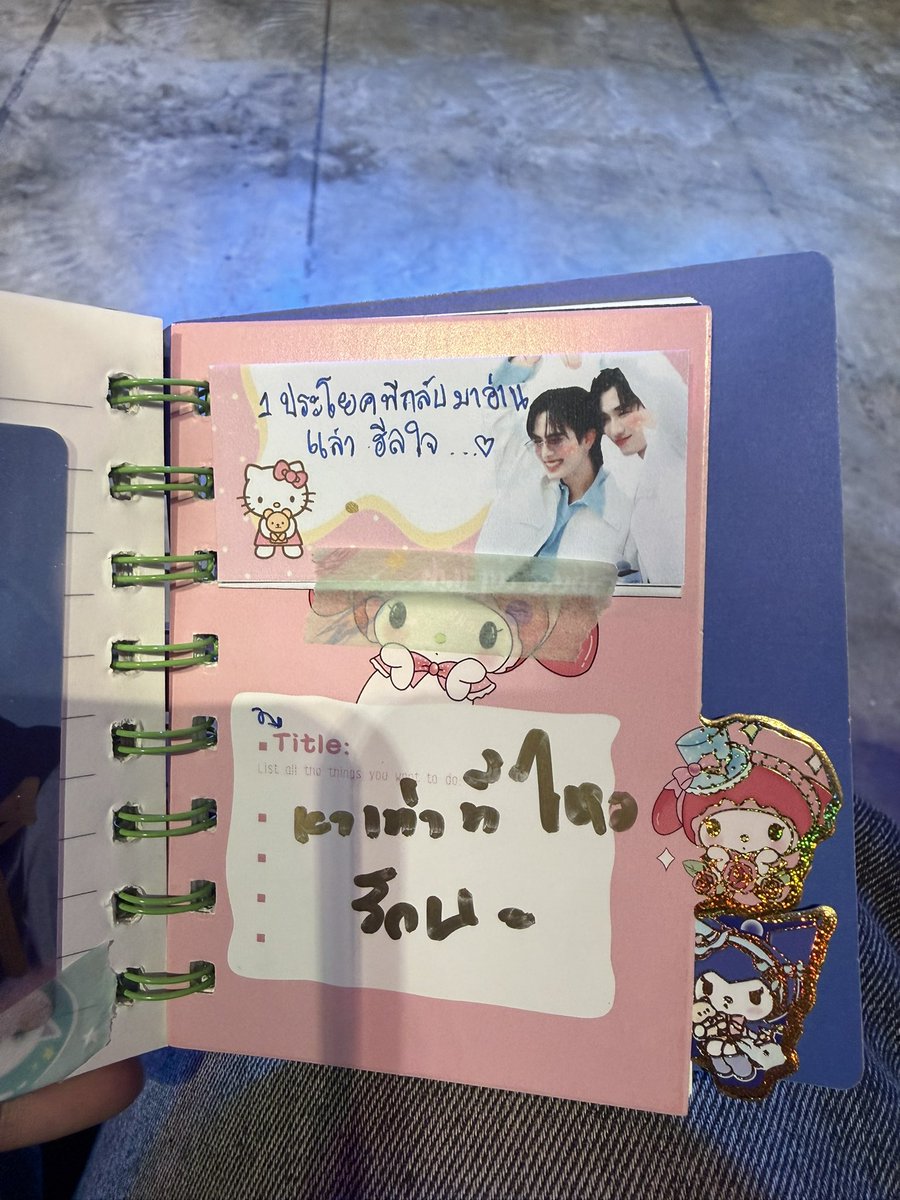 1 ประโยคที่กลับมาอ่าน
แล้ว ฮีลใจ ...♡
Title:
List all the things you want to do.
เท่าที่ไหว